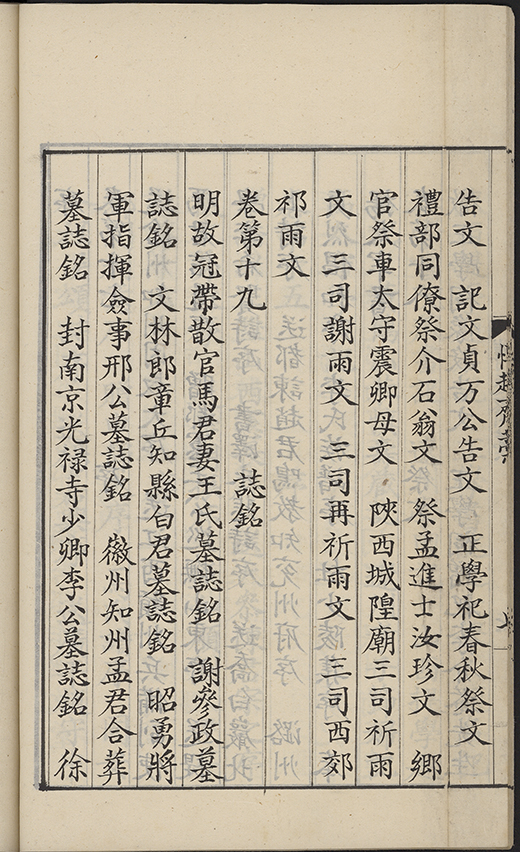 告文　記文貞万公告文　正學祀春秋祭文
禮部同僚祭介石翁文　祭孟進士汝珍文　鄉
官祭車太守震卿母文　陜西城隍廟三司祈雨
文　三司謝雨文　三司再祈雨文　三司西郊
祁雨文
卷第十九　誌銘
明故冠帶散官馬君妻王氏墓誌銘　謝參政墓
誌銘　文林郎章丘知縣白君墓誌銘　昭勇將
軍指揮僉事邢公墓誌銘　徽州知州孟君合葬
墓誌銘　封南京光禄寺少卿李公墓誌銘　徐